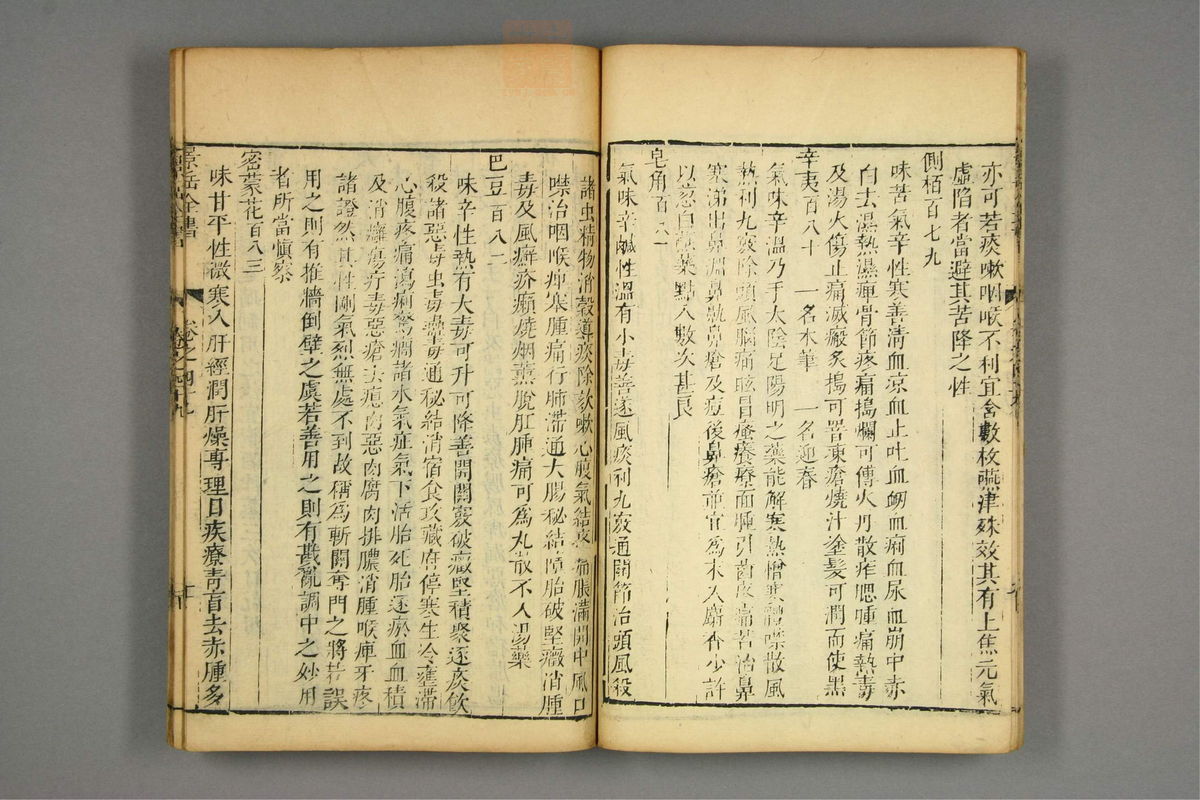 亦可若痰嗽咽喉不利宜含數枚嚥津殊效其有上焦元氣
虛陷者當避其苦降之性
側栢百七九
味苦氣辛性寒善清血凉血止吐血衂血痢血尿血崩中赤
白去濕熱濕痺骨節疼痛搗爛可傅火丹散痄腮腫痛熱毒
及湯火傷止痛滅瘢炙搗可罯凍瘡燒汁塗髮可潤而使黑
辛夷百八十 一名木筆 一名迎春
氣味辛溫乃手太陰足陽明之藥能解寒熱憎寒體噤散風
熱利九竅除頭風腦痛眩冒瘙癢療面腫引齒疼痛若治鼻
寒涕出鼻淵鼻鼽鼻瘡及痘後鼻瘡並宜為末入麝香少許
以葱白蘸藥點入數次甚良
皂角百八一
氣味辛鹹性溫有小毒善逐風痰利九竅通關節治頭風殺
諸虫精物消穀導痰除欬嗽心腹氣結疼痛脹滿開中風口
噤治咽喉痺塞腫痛行肺滯通大腸秘結墮胎破堅癥消腫
毒及風癬疥癩燒烟薰脫肛腫痛可為丸散不入湯藥
巴豆百八二
味辛性熱有大毒可升可降善開關竅破癥堅積聚逐痰飲
殺諸惡毒虫毒蠱毒通秘結消宿食攻藏府停寒生冷壅滯
心腹疼痛瀉痢驚癇諸水氣疝氣下活胎死胎逐瘀血血積
及消癰瘍疔毒惡瘡去瘜肉惡肉腐肉排膿消腫喉痺牙疼
諸證然其性剛氣烈無處不到故稱為斬關奪門之將若誤
用之則有推牆倒壁之虞若善用之則有戡亂調中之妙用
者所當慎察
密蒙花百八三
味甘平性微寒入肝經潤肝燥專理目疾療青盲去赤腫多
景岳全書
卷之四十九